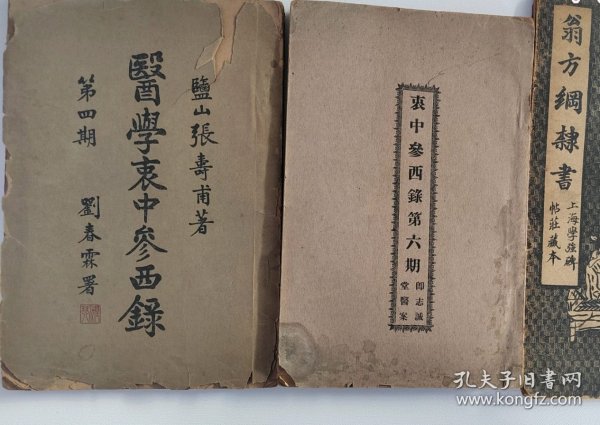 鹽山張壽甫著
醫學衷中參西錄
第四期
劉春霖署
衷中參西錄第六期
即志誠
堂醫案
翁方綱隸書
上海學強碑
帖莊藏本
孔夫子旧书网
www.kongfz.com